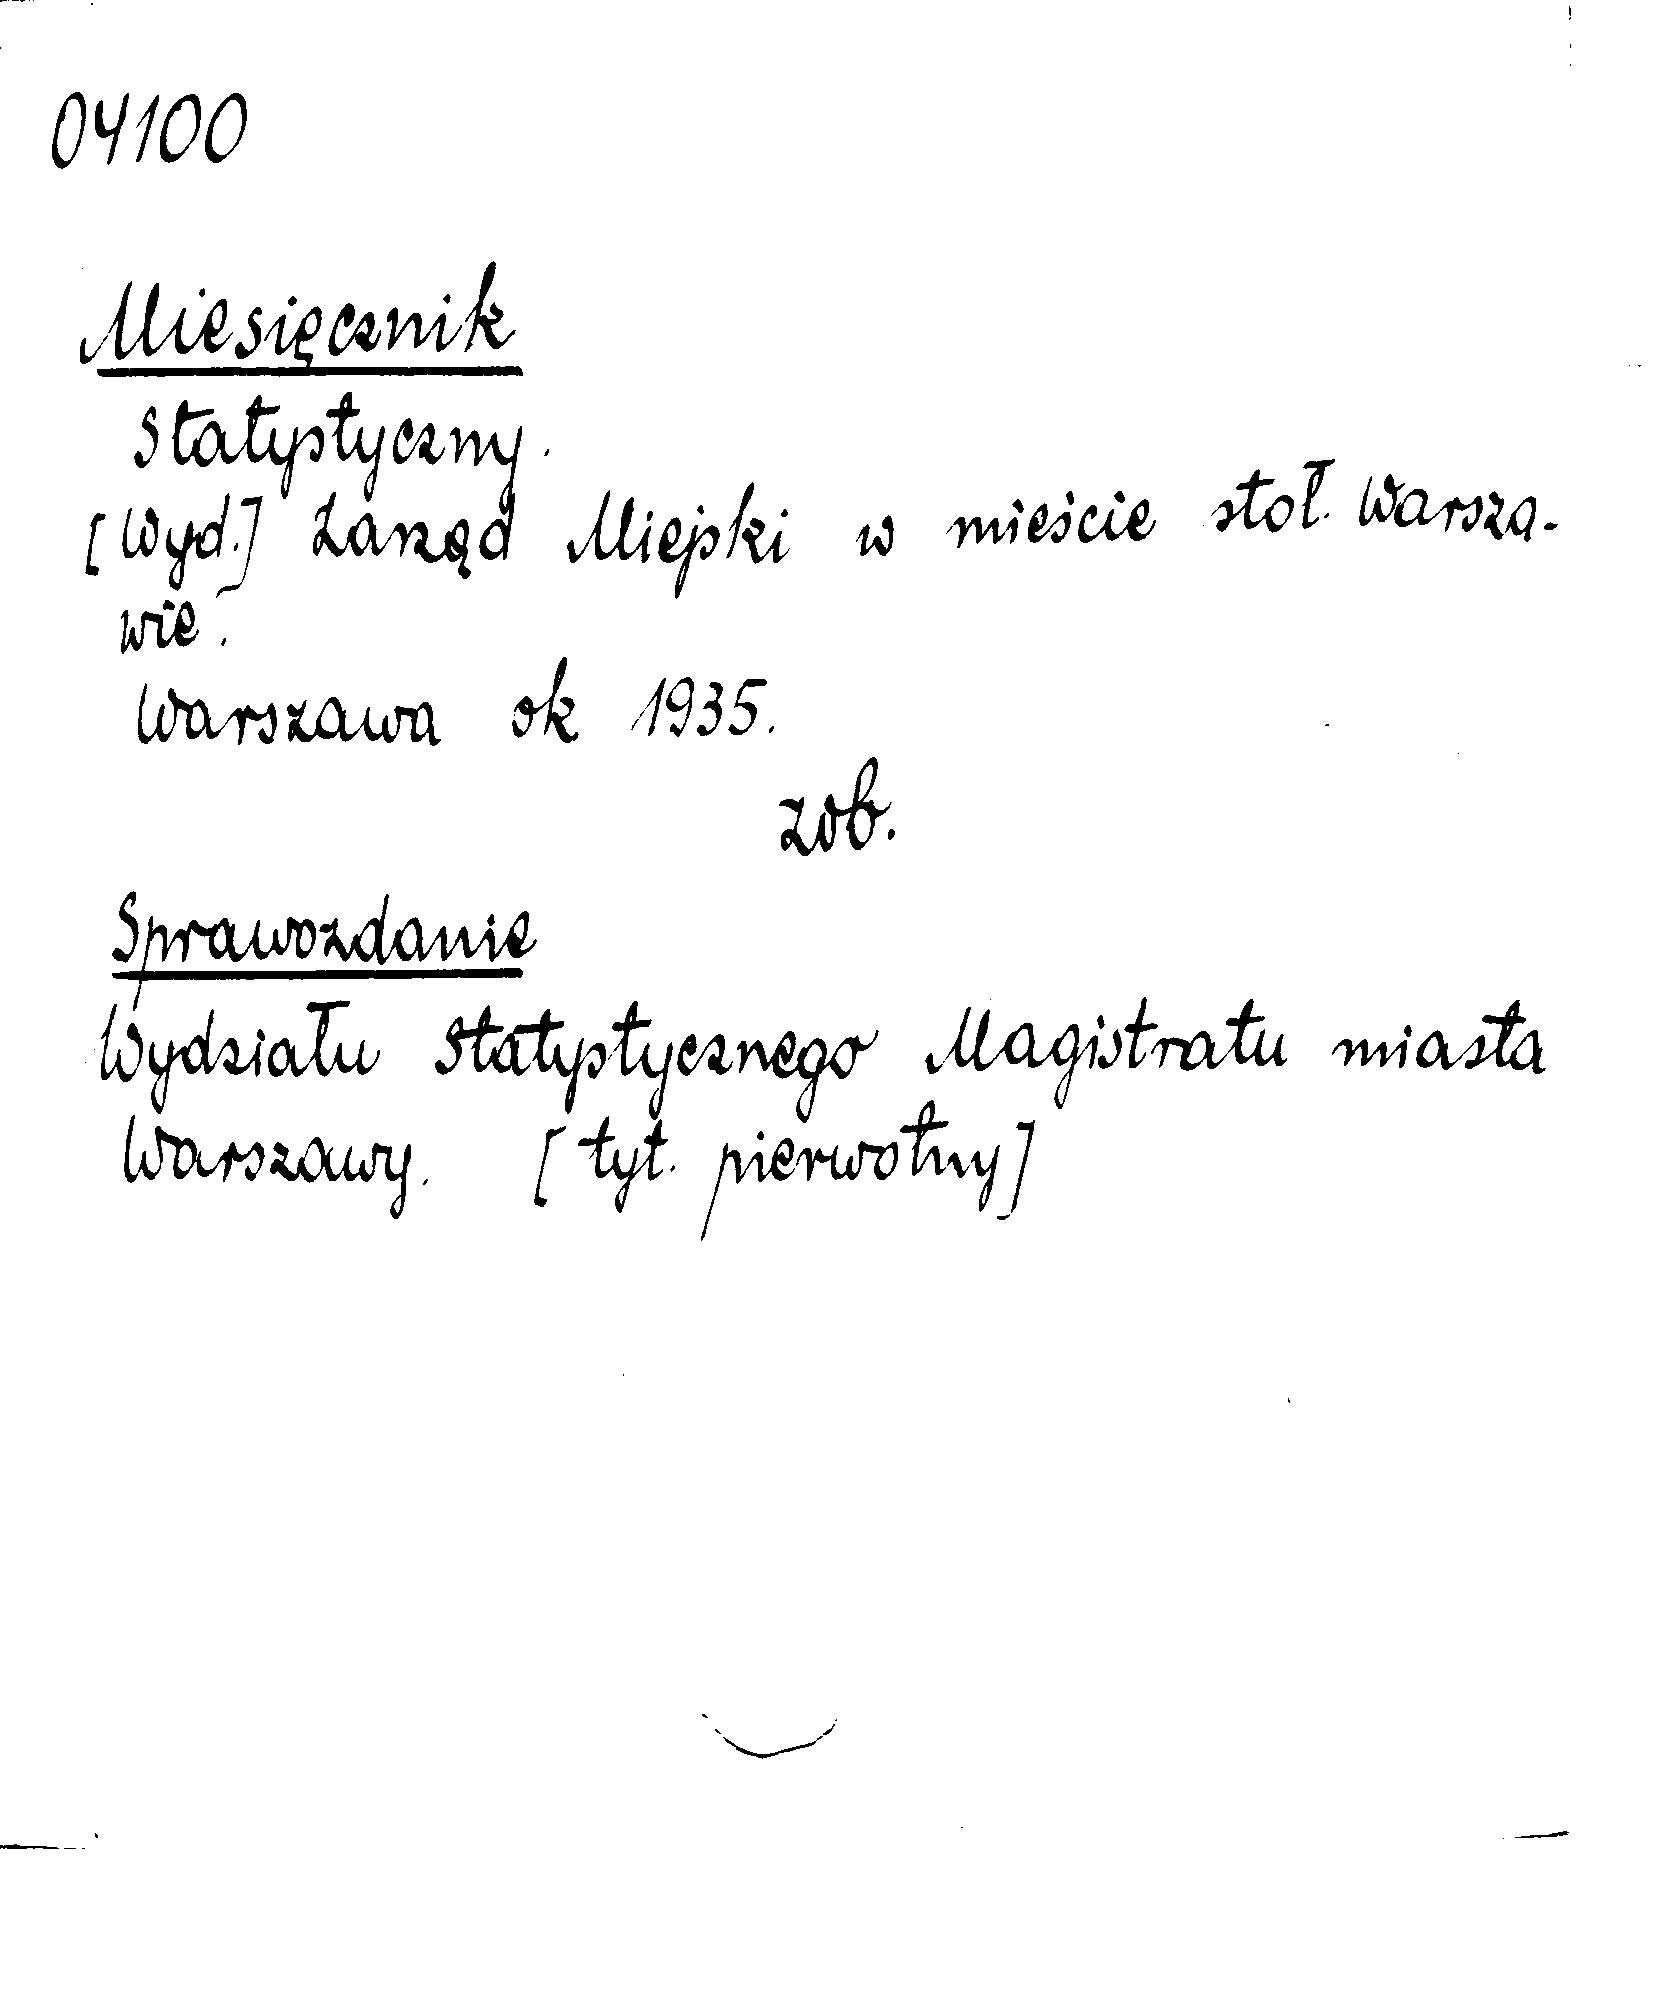 04100
Miesięcznik
Statystyczny.
[Wyd.] Zarząd Miejski w mieście stoł. Warsza-
wie.
Warszawa ok 1935.
zob.
Sprawozdanie
Wydziału Statystycznego Magistratu miasta
Warszawy. [tyt. pierwotny]